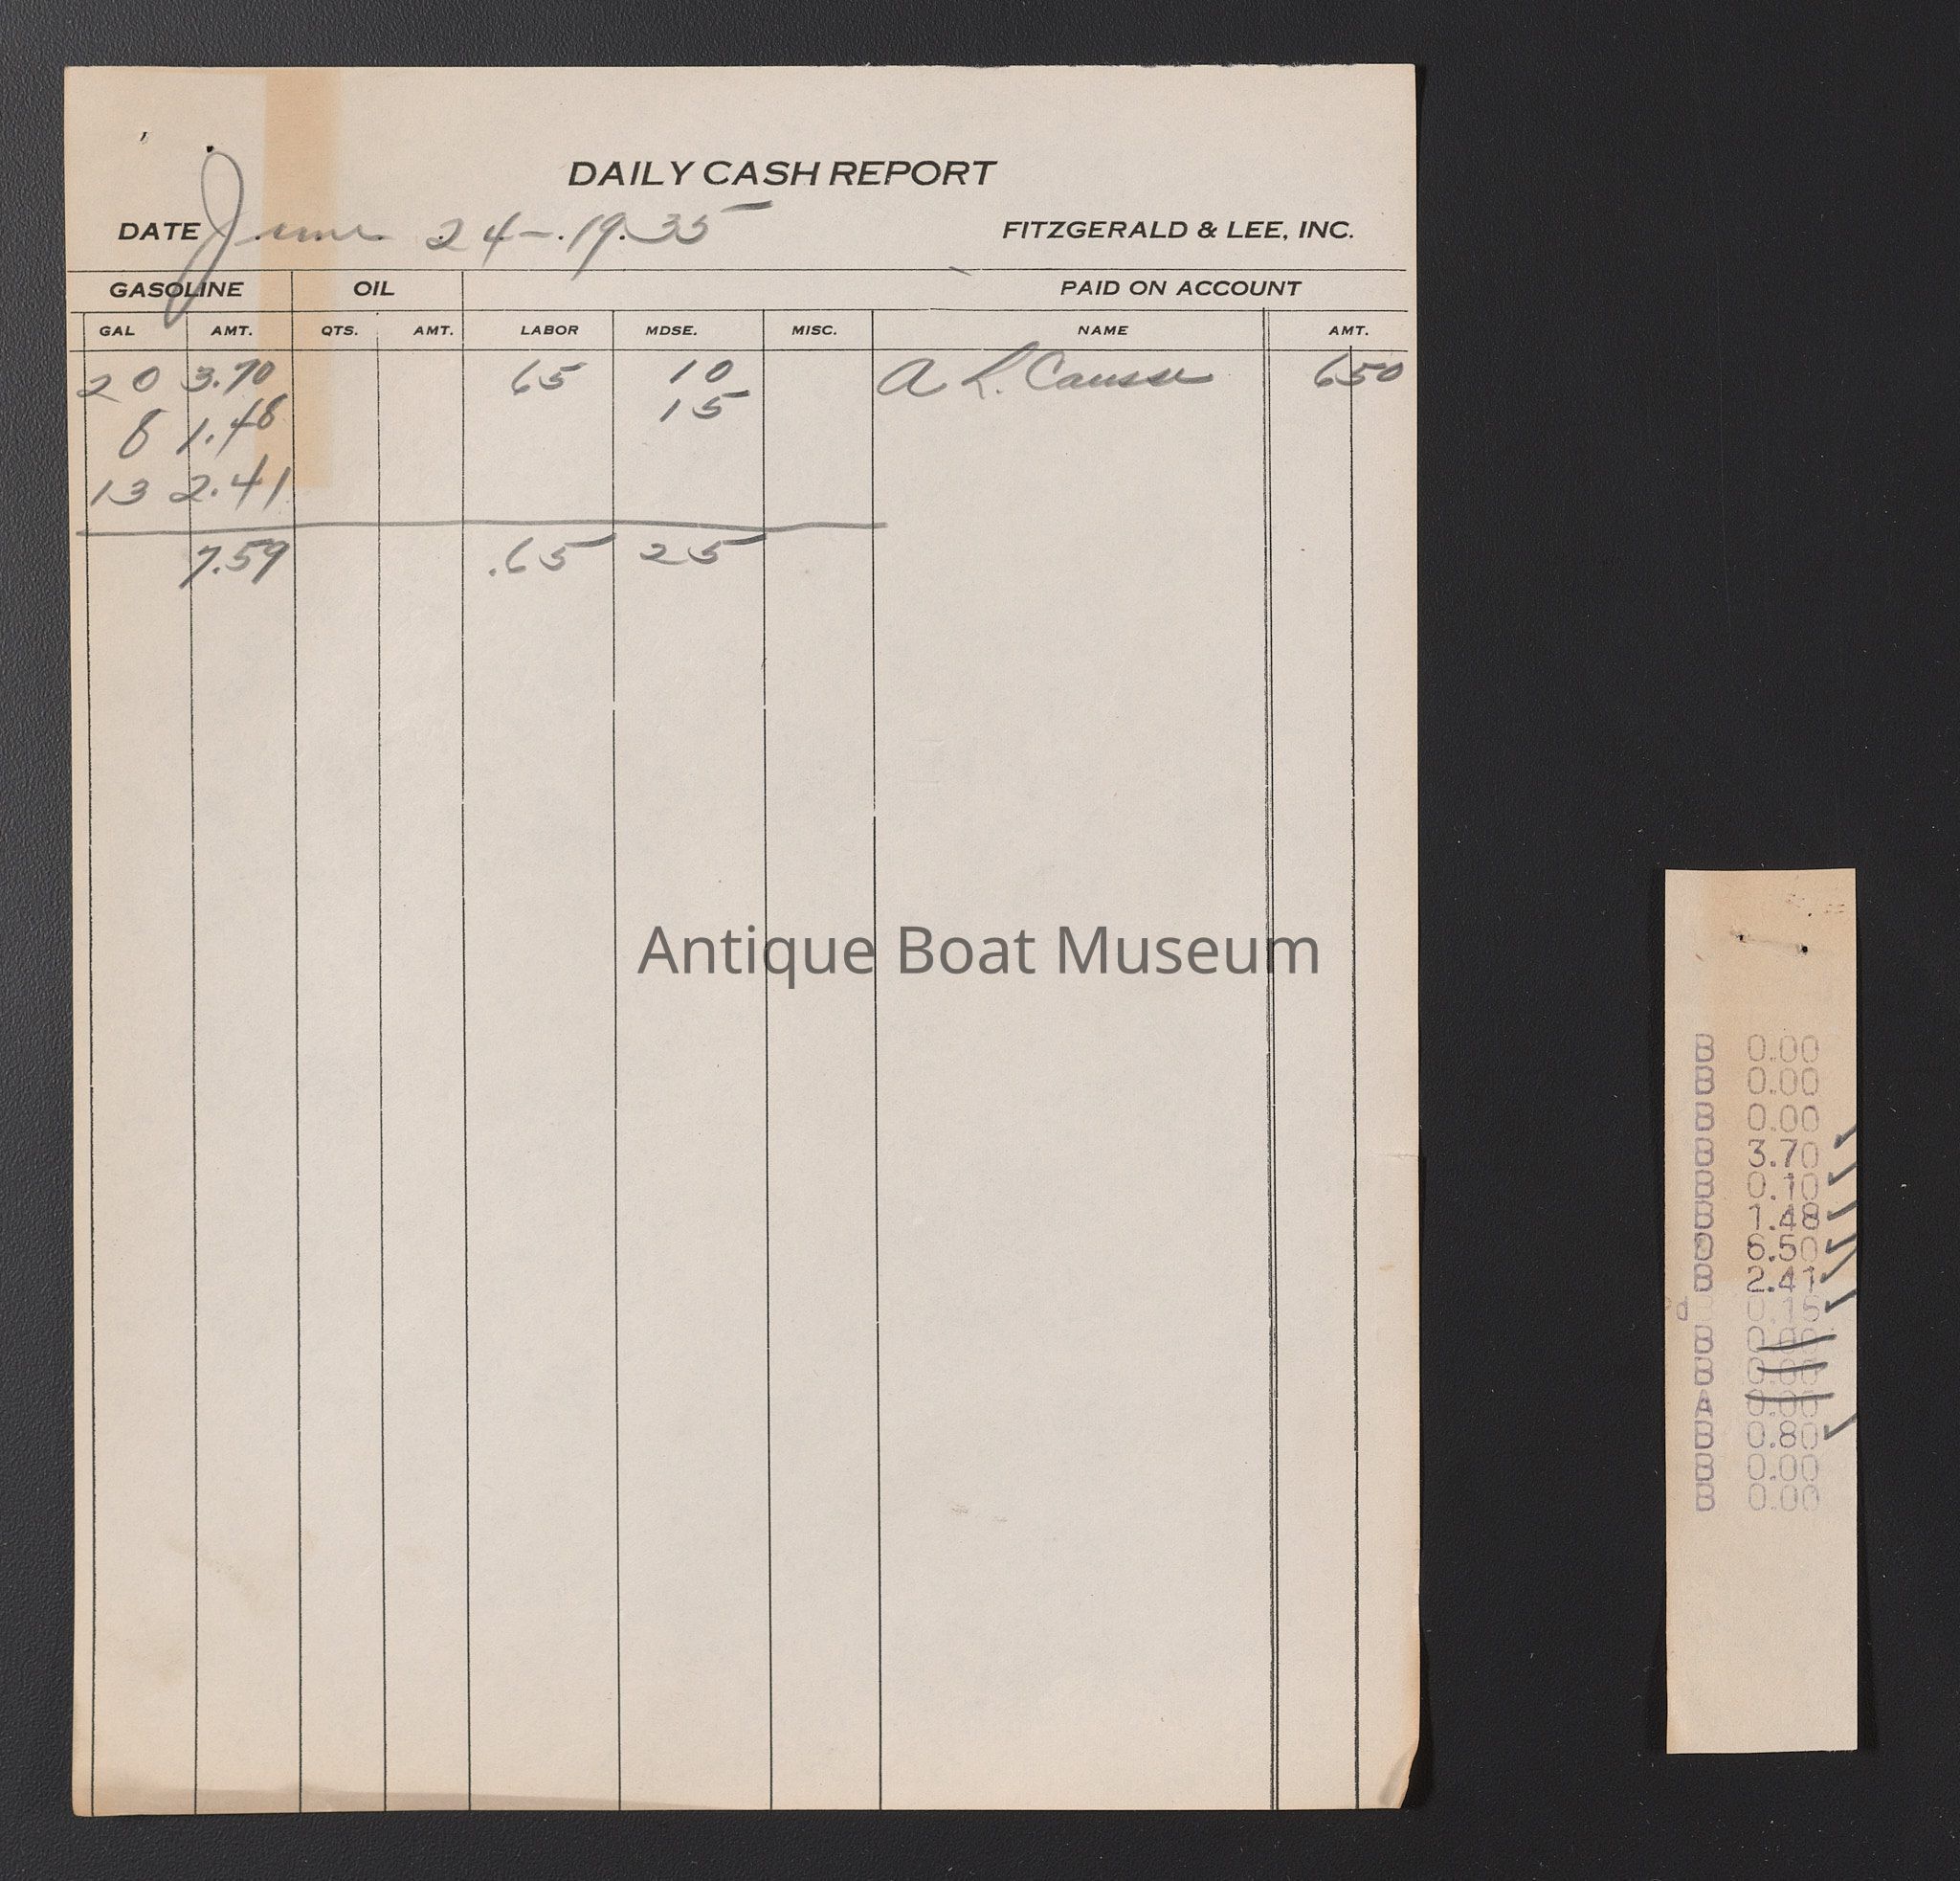 DAILY CASH REPORT
DATE June 24-.19.35 FITZGERALD & LEE, INC.
GASOLINE OIL PAID ON ACCOUNT
GAL AMT. QTS. AMT. LABOR MDSE. MISC. NAME AMT.
20 3.70 65 10 A L. Causse 650
15
8 1.48
13 2.41
7.59 .65 25
Antique Boat Museum
B 0.00
B 0.00
B 0.00
B 3.70
B 0.10
B 1.48
D 6.50
B 2.41
d 0.15
B 0.00
B 0.00
A 0.00
B 0.80
B 0.00
B 0.00